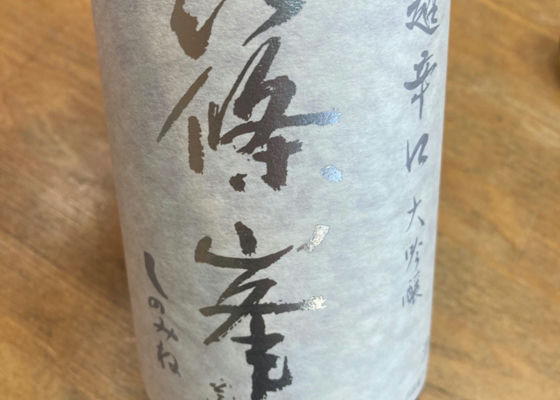 超辛口大吟醸
篠峯
しのみね